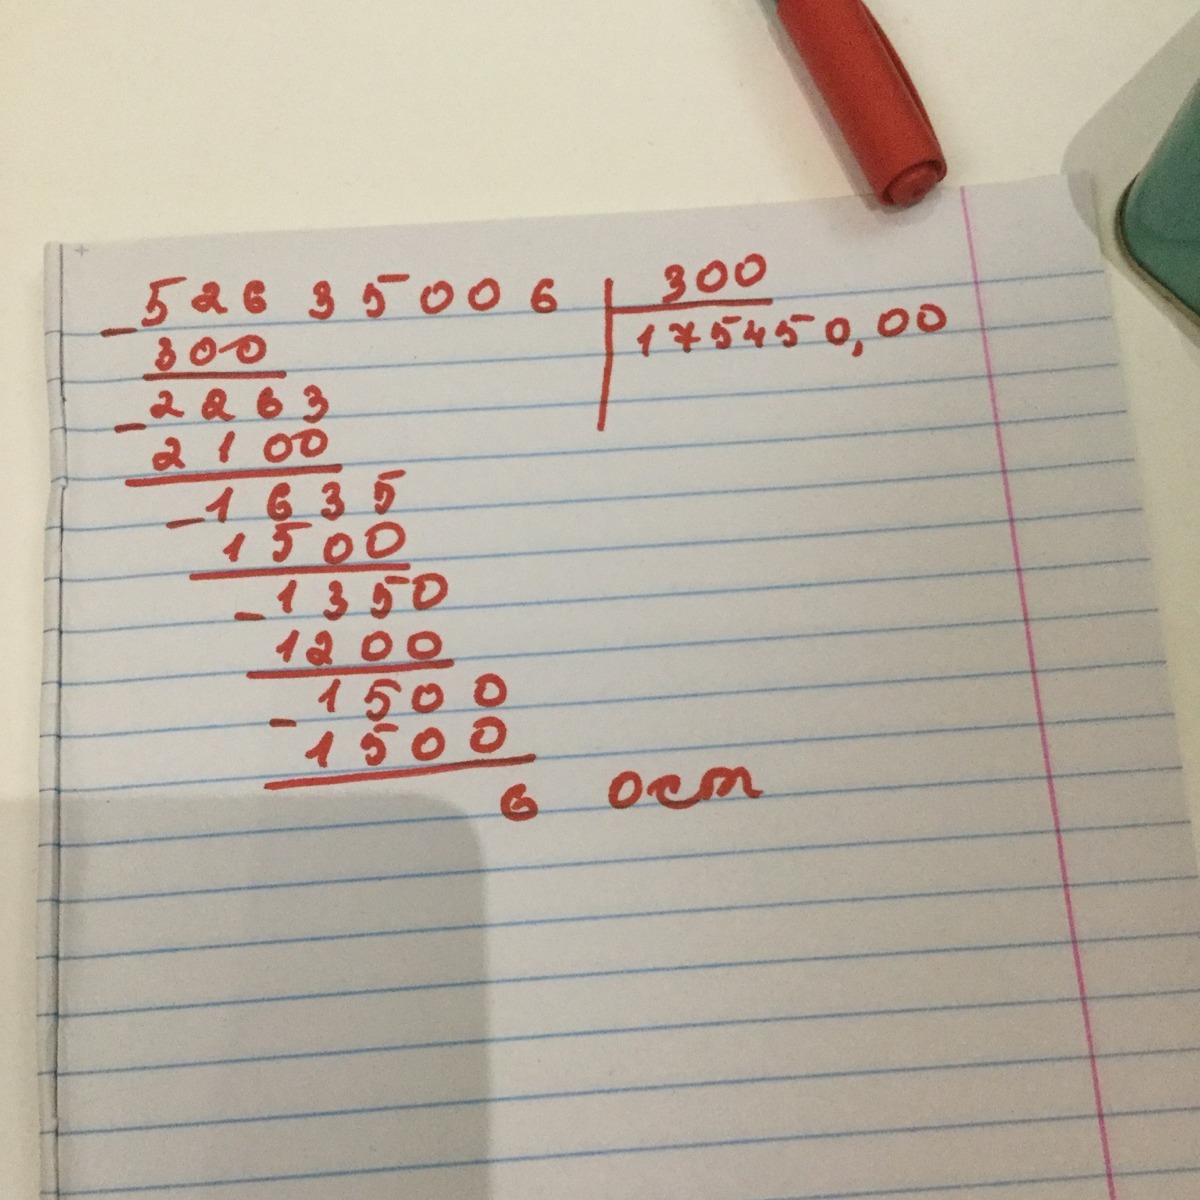 52635006 300
300 175450,00
2263
2100
1635
1500
1350
1200
1500
1500
6 ост